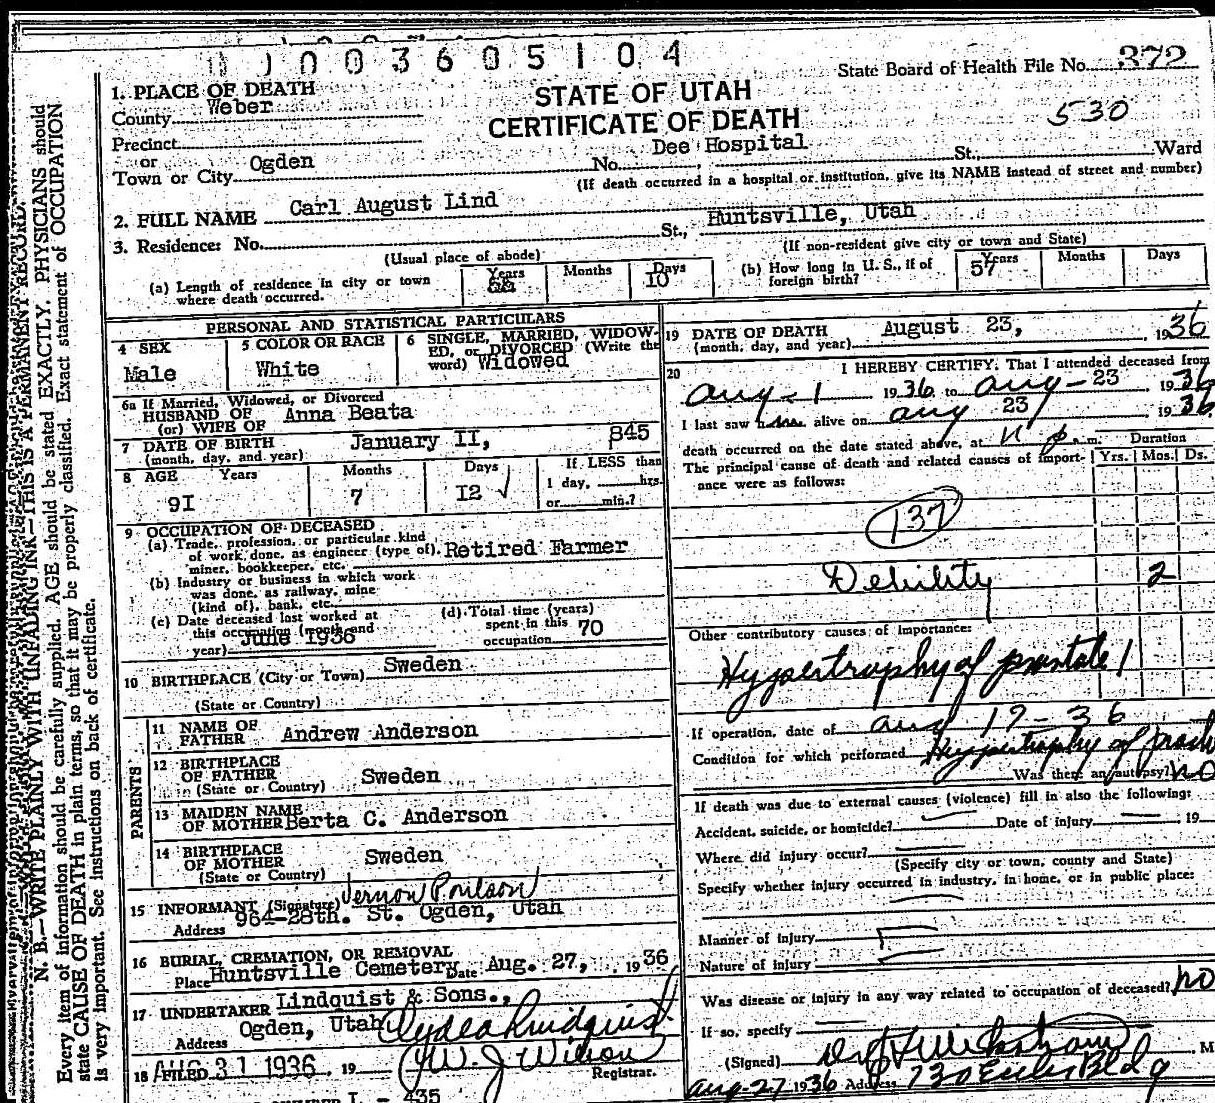 0 0 3 6 0 5 1 0 4
State Board of Health File No. 372
530
STATE OF UTAH
CERTIFICATE OF DEATH
1. PLACE OF DEATH
County Weber
Precinct
or
Town or City Ogden No. Dee Hospital St., Ward
(If death occurred in a hospital or institution, give its NAME instead of street and number)
2. FULL NAME Carl August Lind
3. Residence: No. St., Huntsville, Utah
(Usual place of abode) (If non-resident give city or town and State)
(a) Length of residence in city or town where death occurred. Years Months Days 10
(b) How long in U. S., if of foreign birth? Years 57 Months Days
PERSONAL AND STATISTICAL PARTICULARS
4 SEX Male
5 COLOR OR RACE White
6 SINGLE, MARRIED, WIDOWED, or DIVORCED (Write the word) Widowed
6a If Married, Widowed, or Divorced
HUSBAND OF Anna Beata
(or) WIFE OF
7 DATE OF BIRTH January II, 845
(month, day, and year)
8 AGE Years 9I Months 7 Days I2 ✓ If LESS than
1 day, hrs.
or min.?
9 OCCUPATION OF DECEASED
(a) Trade, profession, or particular kind
of work done, as engineer (type of), Retired Farmer
miner, bookkeeper, etc.
(b) Industry or business in which work
was done, as railway, mine
(kind of), bank, etc.
(c) Date deceased last worked at
this occupation (month and
year) June 1936
(d) Total time (years)
spent in this
occupation 70
10 BIRTHPLACE (City or Town) Sweden
(State or Country)
PARENTS
11 NAME OF FATHER Andrew Anderson
12 BIRTHPLACE OF FATHER Sweden
(State or Country)
13 MAIDEN NAME OF MOTHER Berta C. Anderson
14 BIRTHPLACE OF MOTHER Sweden
(State or Country)
15 INFORMANT (Signature) Vernon Poulson
Address 964-28th. St. Ogden, Utah
16 BURIAL, CREMATION, OR REMOVAL
Place Huntsville Cemetery Date Aug. 27, 1936
17 UNDERTAKER Lindquist & Sons.,
Address Ogden, Utah Clyde Lindquist
18 FILED AUG 31 1936, 19 J W. J Wilson
Registrar.
I - 435
19 DATE OF DEATH August 23, 1936
(month, day, and year)
20 I HEREBY CERTIFY, That I attended deceased from
Aug - 1 1936 to Aug - 23 1936
I last saw him alive on Aug 23 1936
death occurred on the date stated above, at 11 p. m.
The principal cause of death and related causes of importance were as follows:
Duration
Yrs. Mos. Ds.
137
Debility 2
Other contributory causes of importance:
Hypertrophy of prostate 1
If operation, date of Aug 19-36
Condition for which performed Hypertrophy of prost
Was there an autopsy? No
If death was due to external causes (violence) fill in also the following:
Accident, suicide, or homicide? Date of injury 19
Where did injury occur?
(Specify city or town, county and State)
Specify whether injury occurred in industry, in home, or in public place:
Manner of injury
Nature of injury
Was disease or injury in any way related to occupation of deceased? No
If so, specify
(Signed) M
Aug-27 1936 Address 730 Eccles Bldg
N. B.—WRITE PLAINLY WITH UNFADING INK—THIS IS A PERMANENT RECORD.
Every item of information should be carefully supplied. AGE should be stated EXACTLY. PHYSICIANS should
state CAUSE OF DEATH in plain terms, so that it may be properly classified. Exact statement of OCCUPATION
is very important. See instructions on back of certificate.